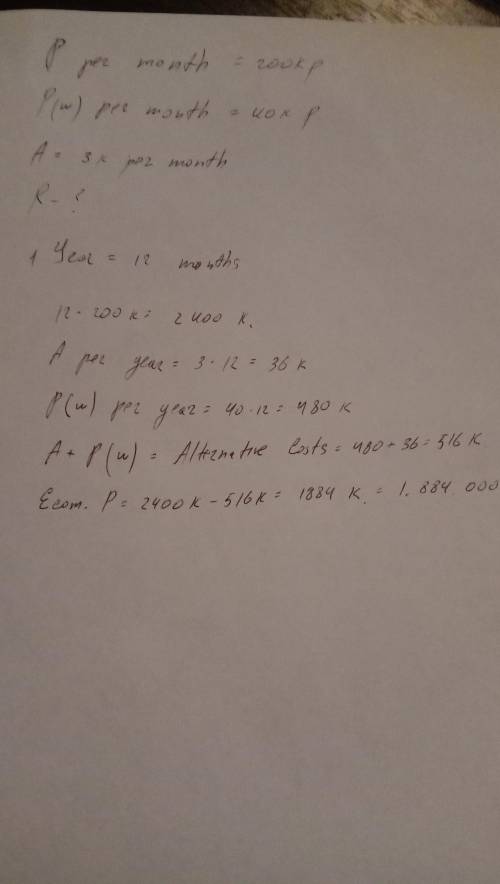 P per month = 200k р
P(w) per month = 40k р
A = 3k per month
R - ?
1 Year = 12 months
12 · 200 k = 2400 k.
A per year = 3 · 12 = 36 k
P(w) per year = 40 · 12 = 480 k
A + P(w) = Alternative Costs = 480 + 36 = 516 k
Econ. P = 2400 k - 516 k = 1884 k. = 1. 884. 000